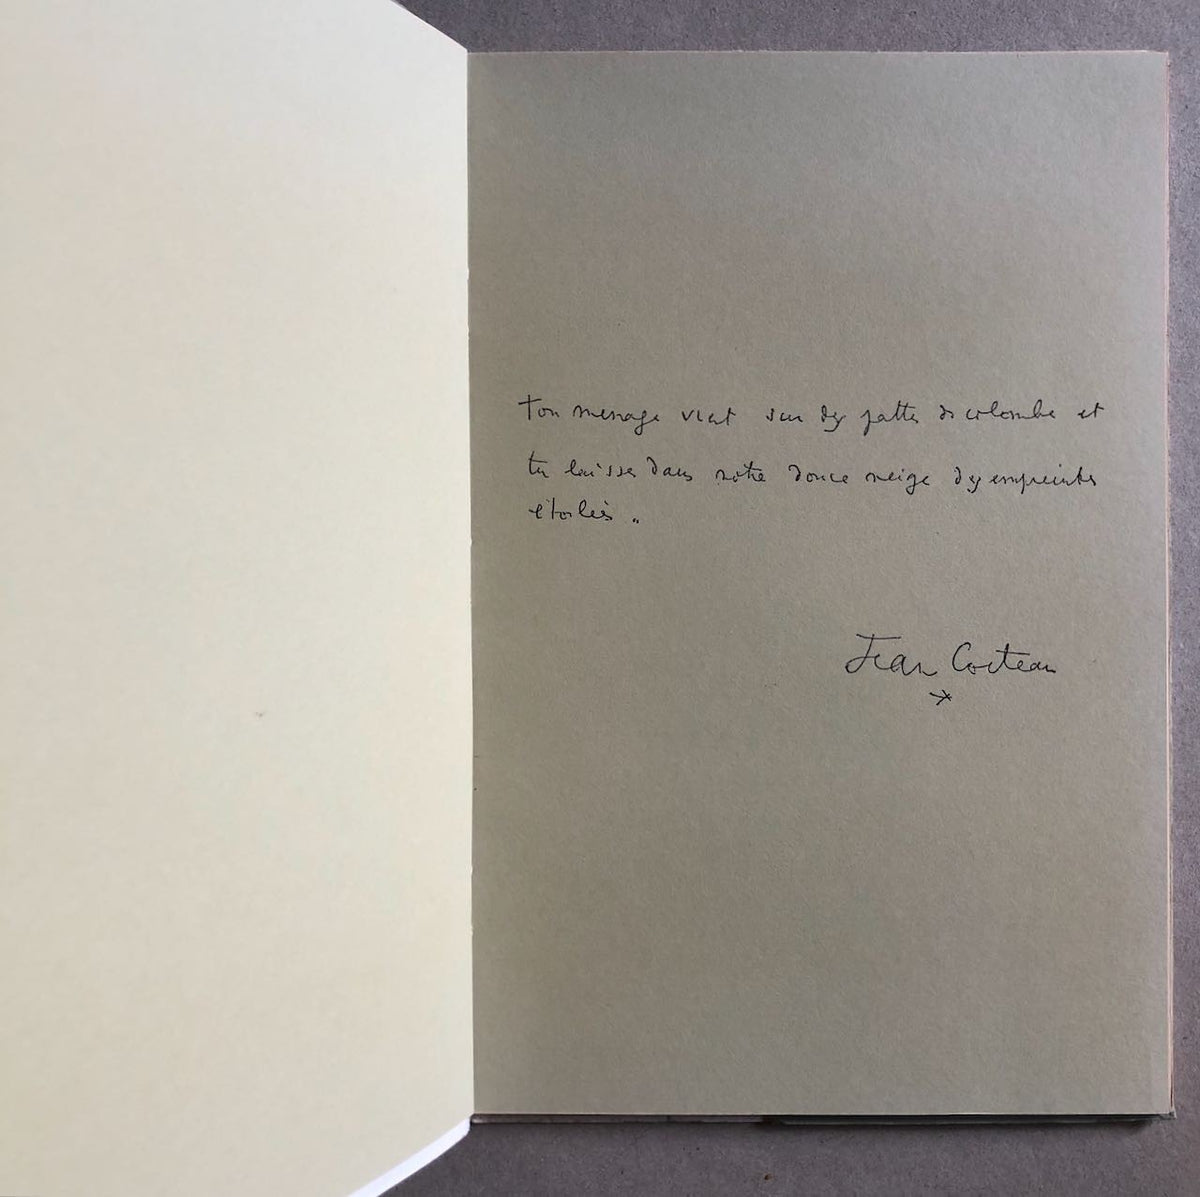 ton message vient sur des pattes de colombe et
tu laisses dans notre douce neige des empreintes
étoilées.
Jean Cocteau